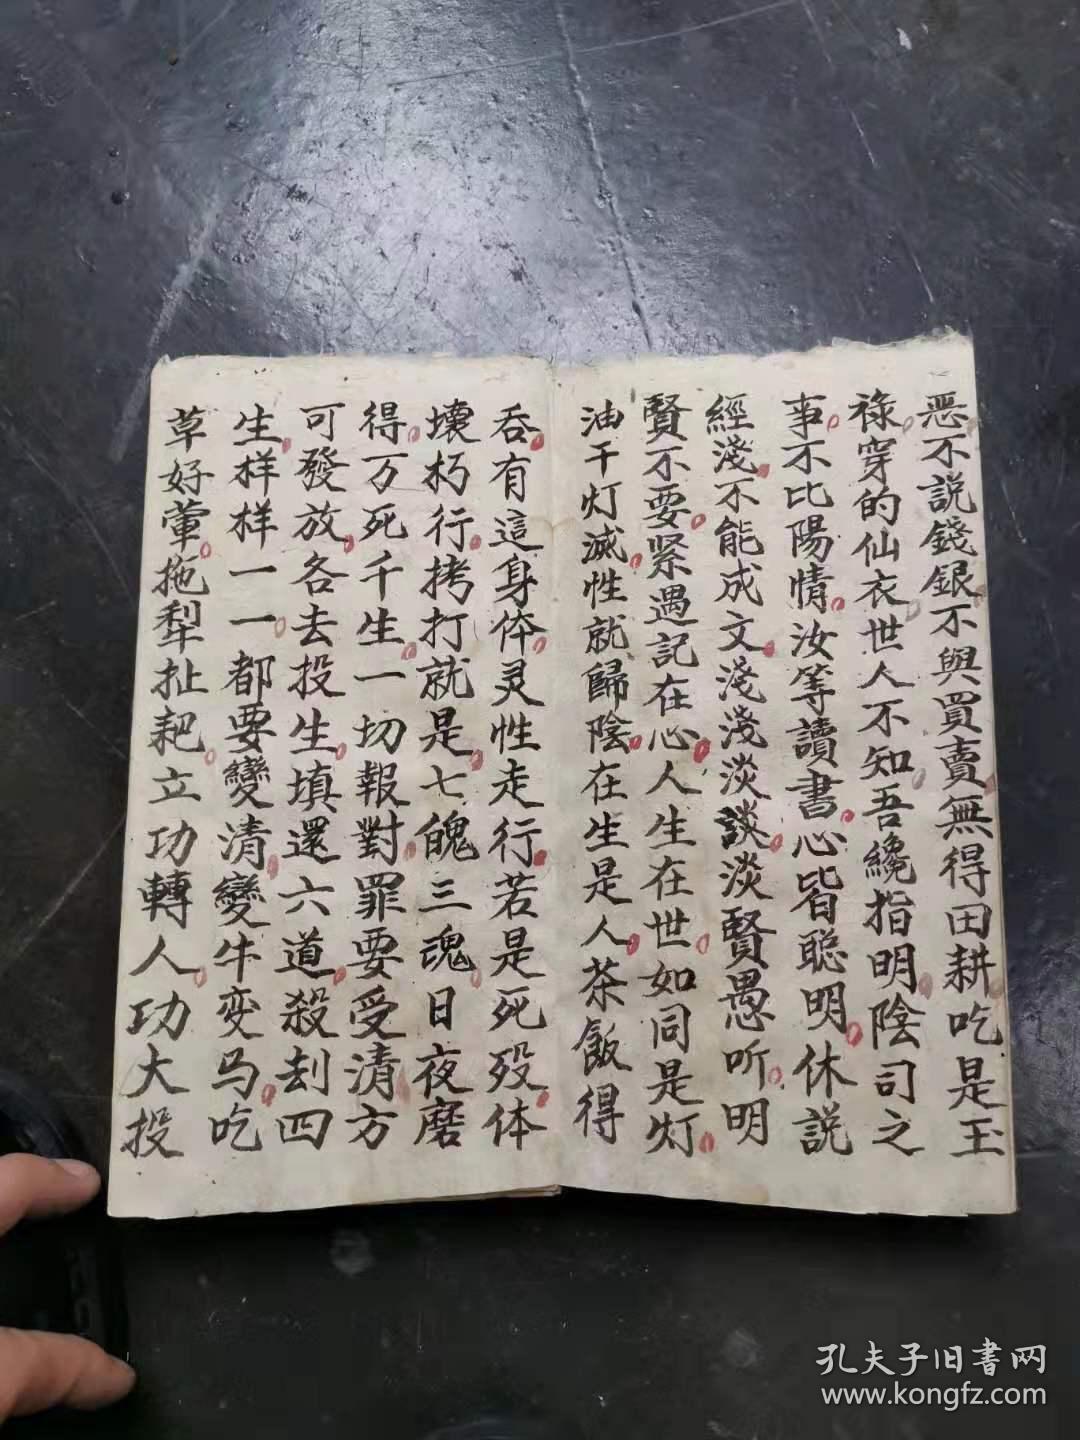 恶不説錢銀不與買賣無得田耕吃是玉
祿穿的仙衣世人不知吾纔指明陰司之
事不比陽情汝等讀書心皆聪明休説
經淺不能成文淺淺淡談淡賢愚听明
賢不要紧遇記在心人生在世如同是灯
油干灯滅性就歸陰在生是人茶飯得
吞有這身体灵性走行若是死殁体
壞朽行拷打就是七魄三魂日夜磨
得万死千生一切報對罪要受清方
可發放各去投生填還六道殺刦四
生样样一一都要變清變牛变马吃
草好葷拖犁扯耙立功轉人功大投
孔夫子旧書网
www.kongfz.com